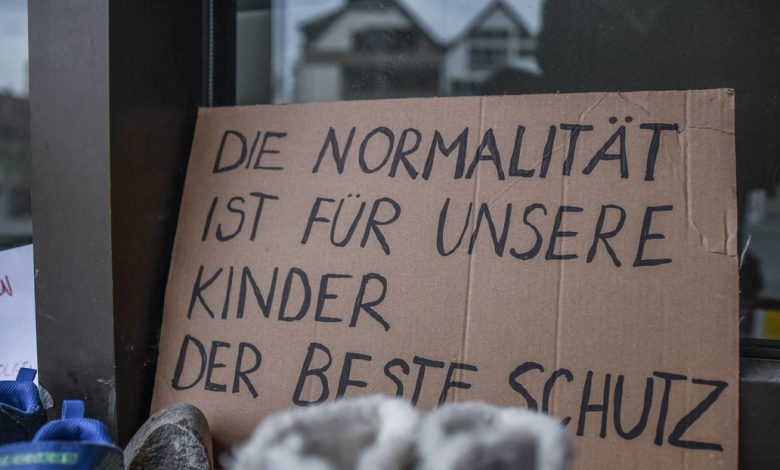 DIE NORMALITÄT
IST FÜR UNSERE
KINDER
DER BESTE SCHUTZ